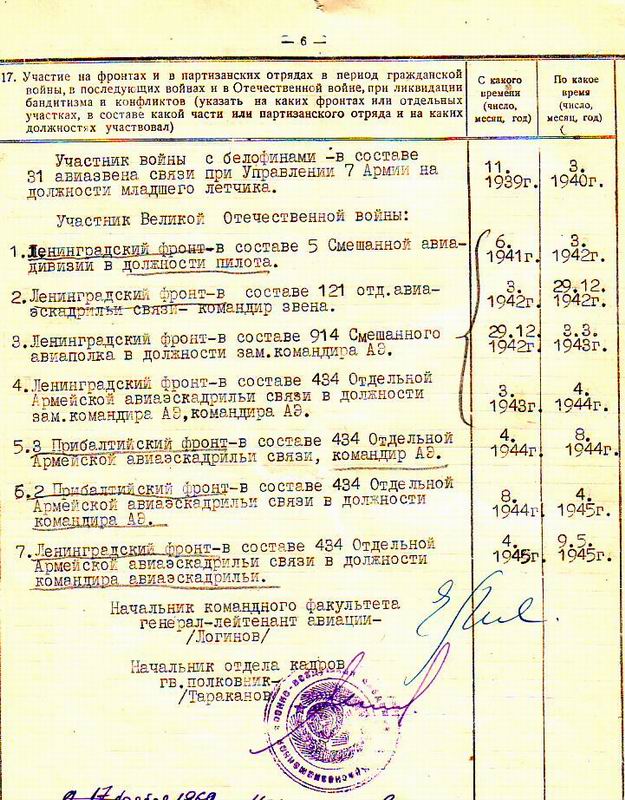 — 6 —
17. Участие на фронтах и в партизанских отрядах в период гражданской
войны, в последующих войнах и в Отечественной войне, при ликвидации
бандитизма и конфликтов (указать на каких фронтах или отдельных
участках, в составе какой части или партизанского отряда и на каких
должностях участвовал)
С какого
времени
(число,
месяц, год)
По какое
время
(число,
месяц, год)
Участник войны с белофинами -в составе
31 авиазвена связи при Управлении 7 Армии на
должности младшего летчика.
11.
1939г.
3.
1940г.
Участник Великой Отечественной войны:
1. Ленинградский фронт-в составе 5 Смешанной авиа-
дивизии в должности пилота.
6.
1941г.
3.
1942г.
2. Ленинградский фронт-в составе 121 отд.авиа-
эскадрильи связи- командир звена.
3.
1942г.
29.12.
1942г.
3. Ленинградский фронт-в составе 914 Смешанного
авиаполка в должности зам.командира АЭ.
29.12.
1942г.
3.3.
1943г.
4. Ленинградский фронт-в составе 434 Отдельной
Армейской авиаэскадрильи связи в должности
зам.командира АЭ,командира АЭ.
3.
1943г.
4.
1944г.
5. 3 Прибалтийский фронт-в составе 434 Отдельной
Армейской авиаэскадрильи связи, командир АЭ.
4.
1944г.
8.
1944г.
6. 2 Прибалтийский фронт-в составе 434 Отдельной
Армейской авиаэскадрильи связи в должности
командира АЭ.
8.
1944г.
4.
1945г.
7. Ленинградский фронт-в составе 434 Отдельной
Армейской авиаэскадрильи связи в должности
командира авиаэскадрильи.
4.
1945г.
9.5.
1945г.
Начальник командного факультета
генерал-лейтенант авиации-
/Логинов/
Начальник отдела кадров
гв.полковник-
/Тараканов